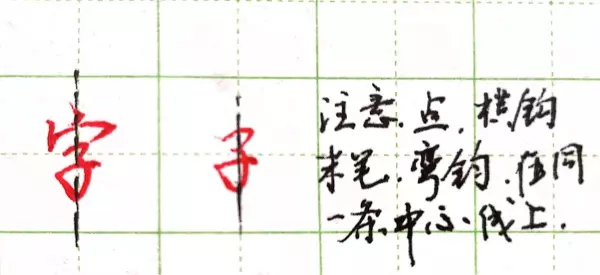 字 子
注意.点.横钩
末笔.弯钩.在同
一条中心线上.